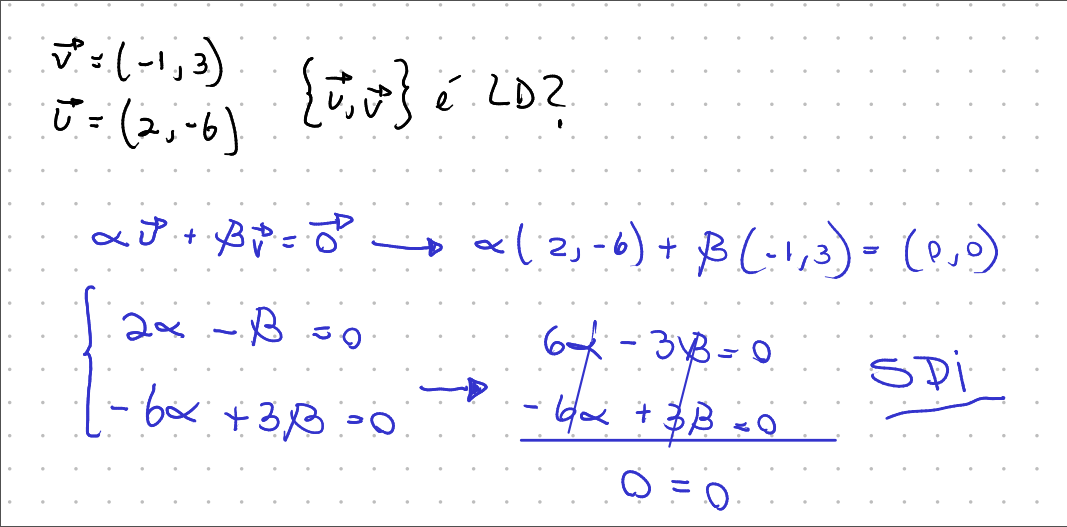 v⃗ = (-1, 3)
u⃗ = (2, -6)
{u⃗, v⃗} é LD?
α u⃗ + β v⃗ = 0⃗ → α(2, -6) + β(-1, 3) = (0, 0)
{ 2α - β = 0
-6α + 3β = 0
→ 6α - 3β = 0
-6α + 3β = 0
0 = 0
SPi